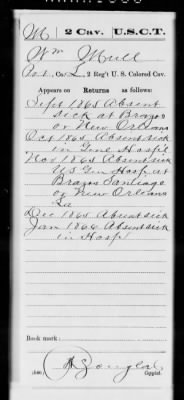 M | 2 Cav. | U.S.C.T.
Wm Mull
Pvt, Co. L, 2 Reg't U. S. Colored Cav.
Appears on Returns as follows:
Sept 1865 Absent
sick at Brazos
or New Orleans
Oct 1865 Absent sick
in Genl Hospl
Nov 1865 Absent sick
US Gen Hosp at
Brazos Santiago
or New Orleans
La
Dec 1865 Absent sick
Jan 1866 Absent sick
in Hosp'l
Book mark:
(546)
Copyist.